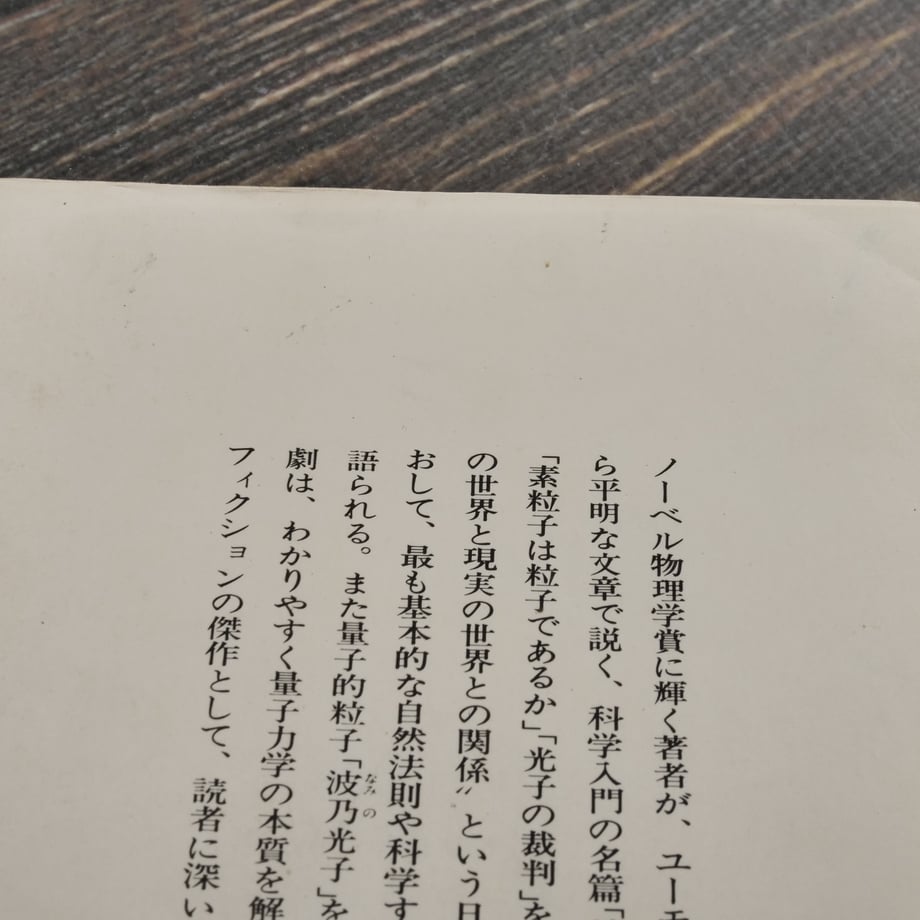 ノーベル物理学賞に輝く著者が、ユーモ
ら平明な文章で説く、科学入門の名篇「
「素粒子は粒子であるか」「光子の裁判」を
の世界と現実の世界との関係〟という日
おして、最も基本的な自然法則や科学す
語られる。また量子的粒子「波乃光子」を
なみの
劇は、わかりやすく量子力学の本質を解
フィクションの傑作として、読者に深い